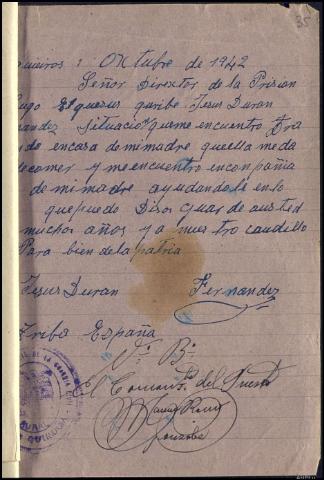 35
uiros : Oktubre de 1942
Señor Director de la Prision
Jesus Duran
nandez situacion queme encuentro tra
de encasa demimadre queella meda
decomer y meencuentro enconpañia
de mimadre ayudandole enlo
quepuedo Dios guarde austed
muchos años ya nuestro caudillo
Para bien delapatria
Jesus Duran Fernandez
Ariba España
Vº Bº
El Comant. del Puesto